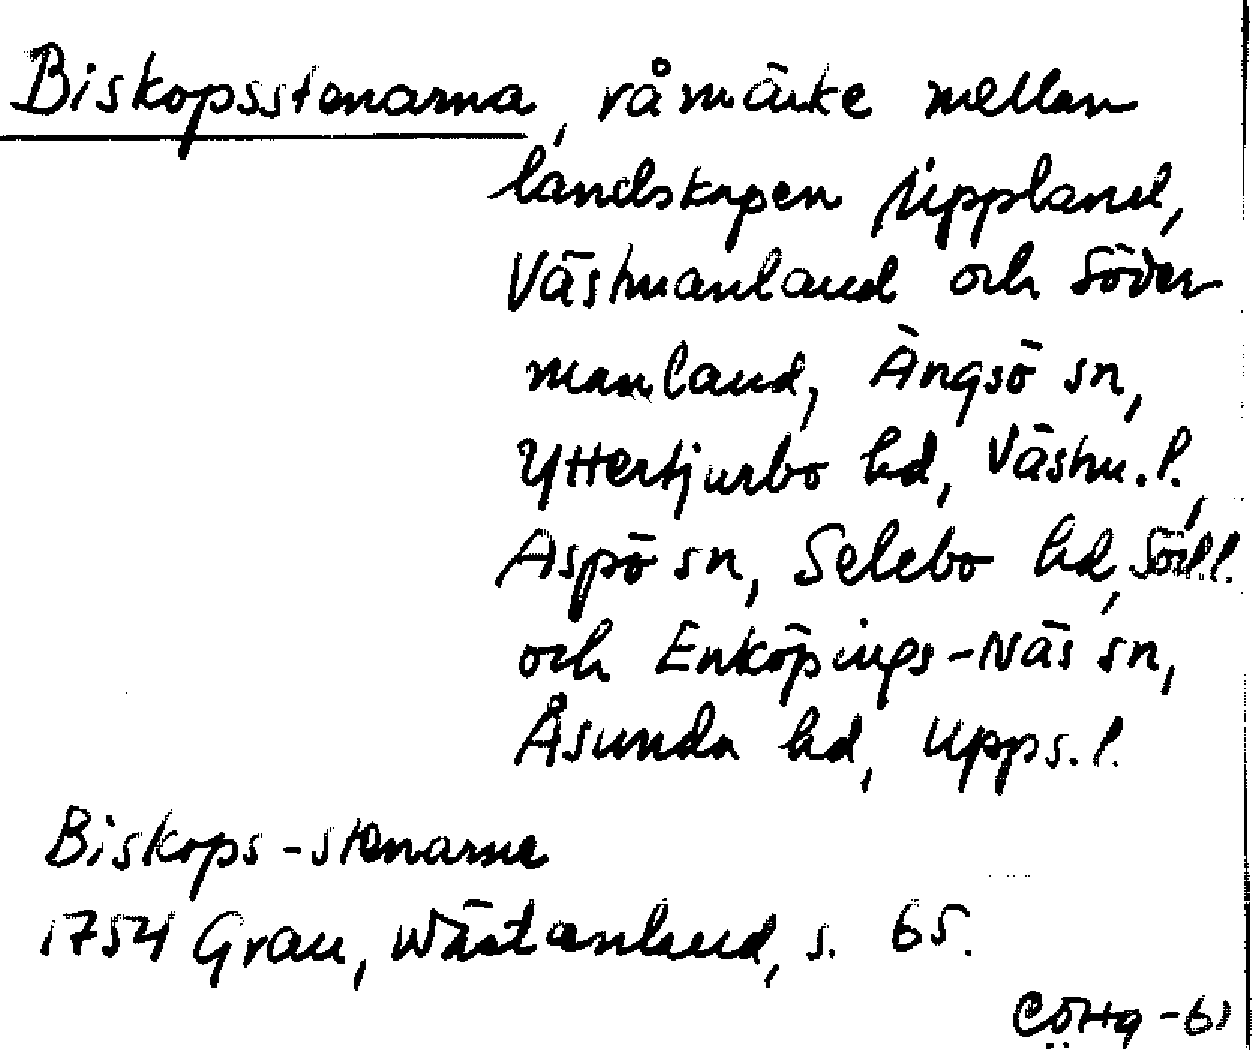 Biskopsstenarna, råmärke mellan
landskapen Uppland,
Västmanland och Söder
manland, Ängsö sn,
Yttertjurbo hd, Västm.l.,
Aspö sn, Selebo hd, Söd.l.
och Enköpings-Näs sn,
Åsunda hd, Upps.l.
Biskops-stenarne
1754 Grau, Wästanland, s. 65.
CÖHg -61